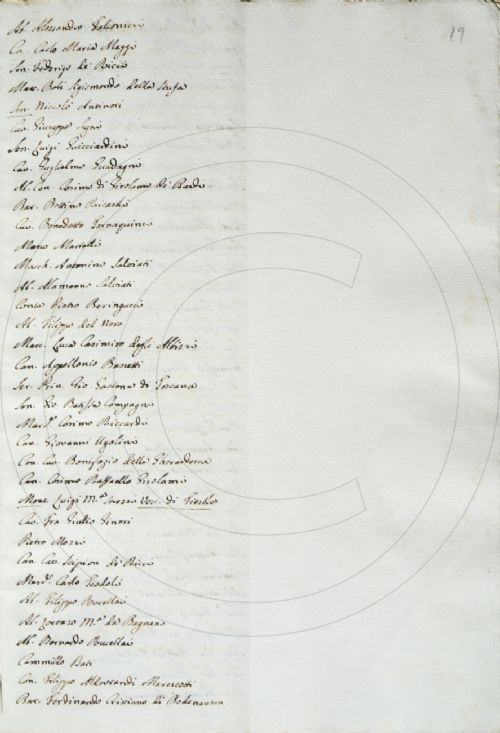 19
Ab. Alessandro Falconieri
Ca. Carlo Maria Maggi
Sen. Federigo de' Ricci
Marc. Bali Sigismondo della Stufa
Sen. Niccolò Antinori
Cav. Giuseppe
Sen. Luigi Guicciardini
Cav. Guglielmo Guadagni
Ab. Can. Cosimo di Girolamo de' Bardi
Bar. Bettino Ricasoli
Cav. Benedetto Tornaquinci
Marco Martelli
March. Antonino Salviati
Ab. Alamanno Salviati
Conte Pietro Beringucci
Ab. Filippo del Nero
Marc. Luca Casimiro degli Albizi
Can. Appollonio Bassetti
Ser. Prin. Gio. Gastone di Toscana
Sen. Gio Batista Compagni
March. Cosimo Riccardi
Cav. Giovanni Ugolini
Con. Cav. Bonifazio della Gherardesca
Can. Cosimo Raffaello Girolami
Mons. Luigi M.ª Strozzi Vesc. di Fiesole
Cav. Fra Giulio Ginori
Pietro Mozzi
Can. Cav. Scipion de' Ricci
March. Carlo Teodoli
Ab. Filippo Rucellai
Ab. Lorenzo M.ª da Bagnano
Ab. Bernardo Rucellai
Cammillo Bati
Con. Filippo Alessandri Marescotti
Bar. Ferdinando Cristiano di Bodenausen